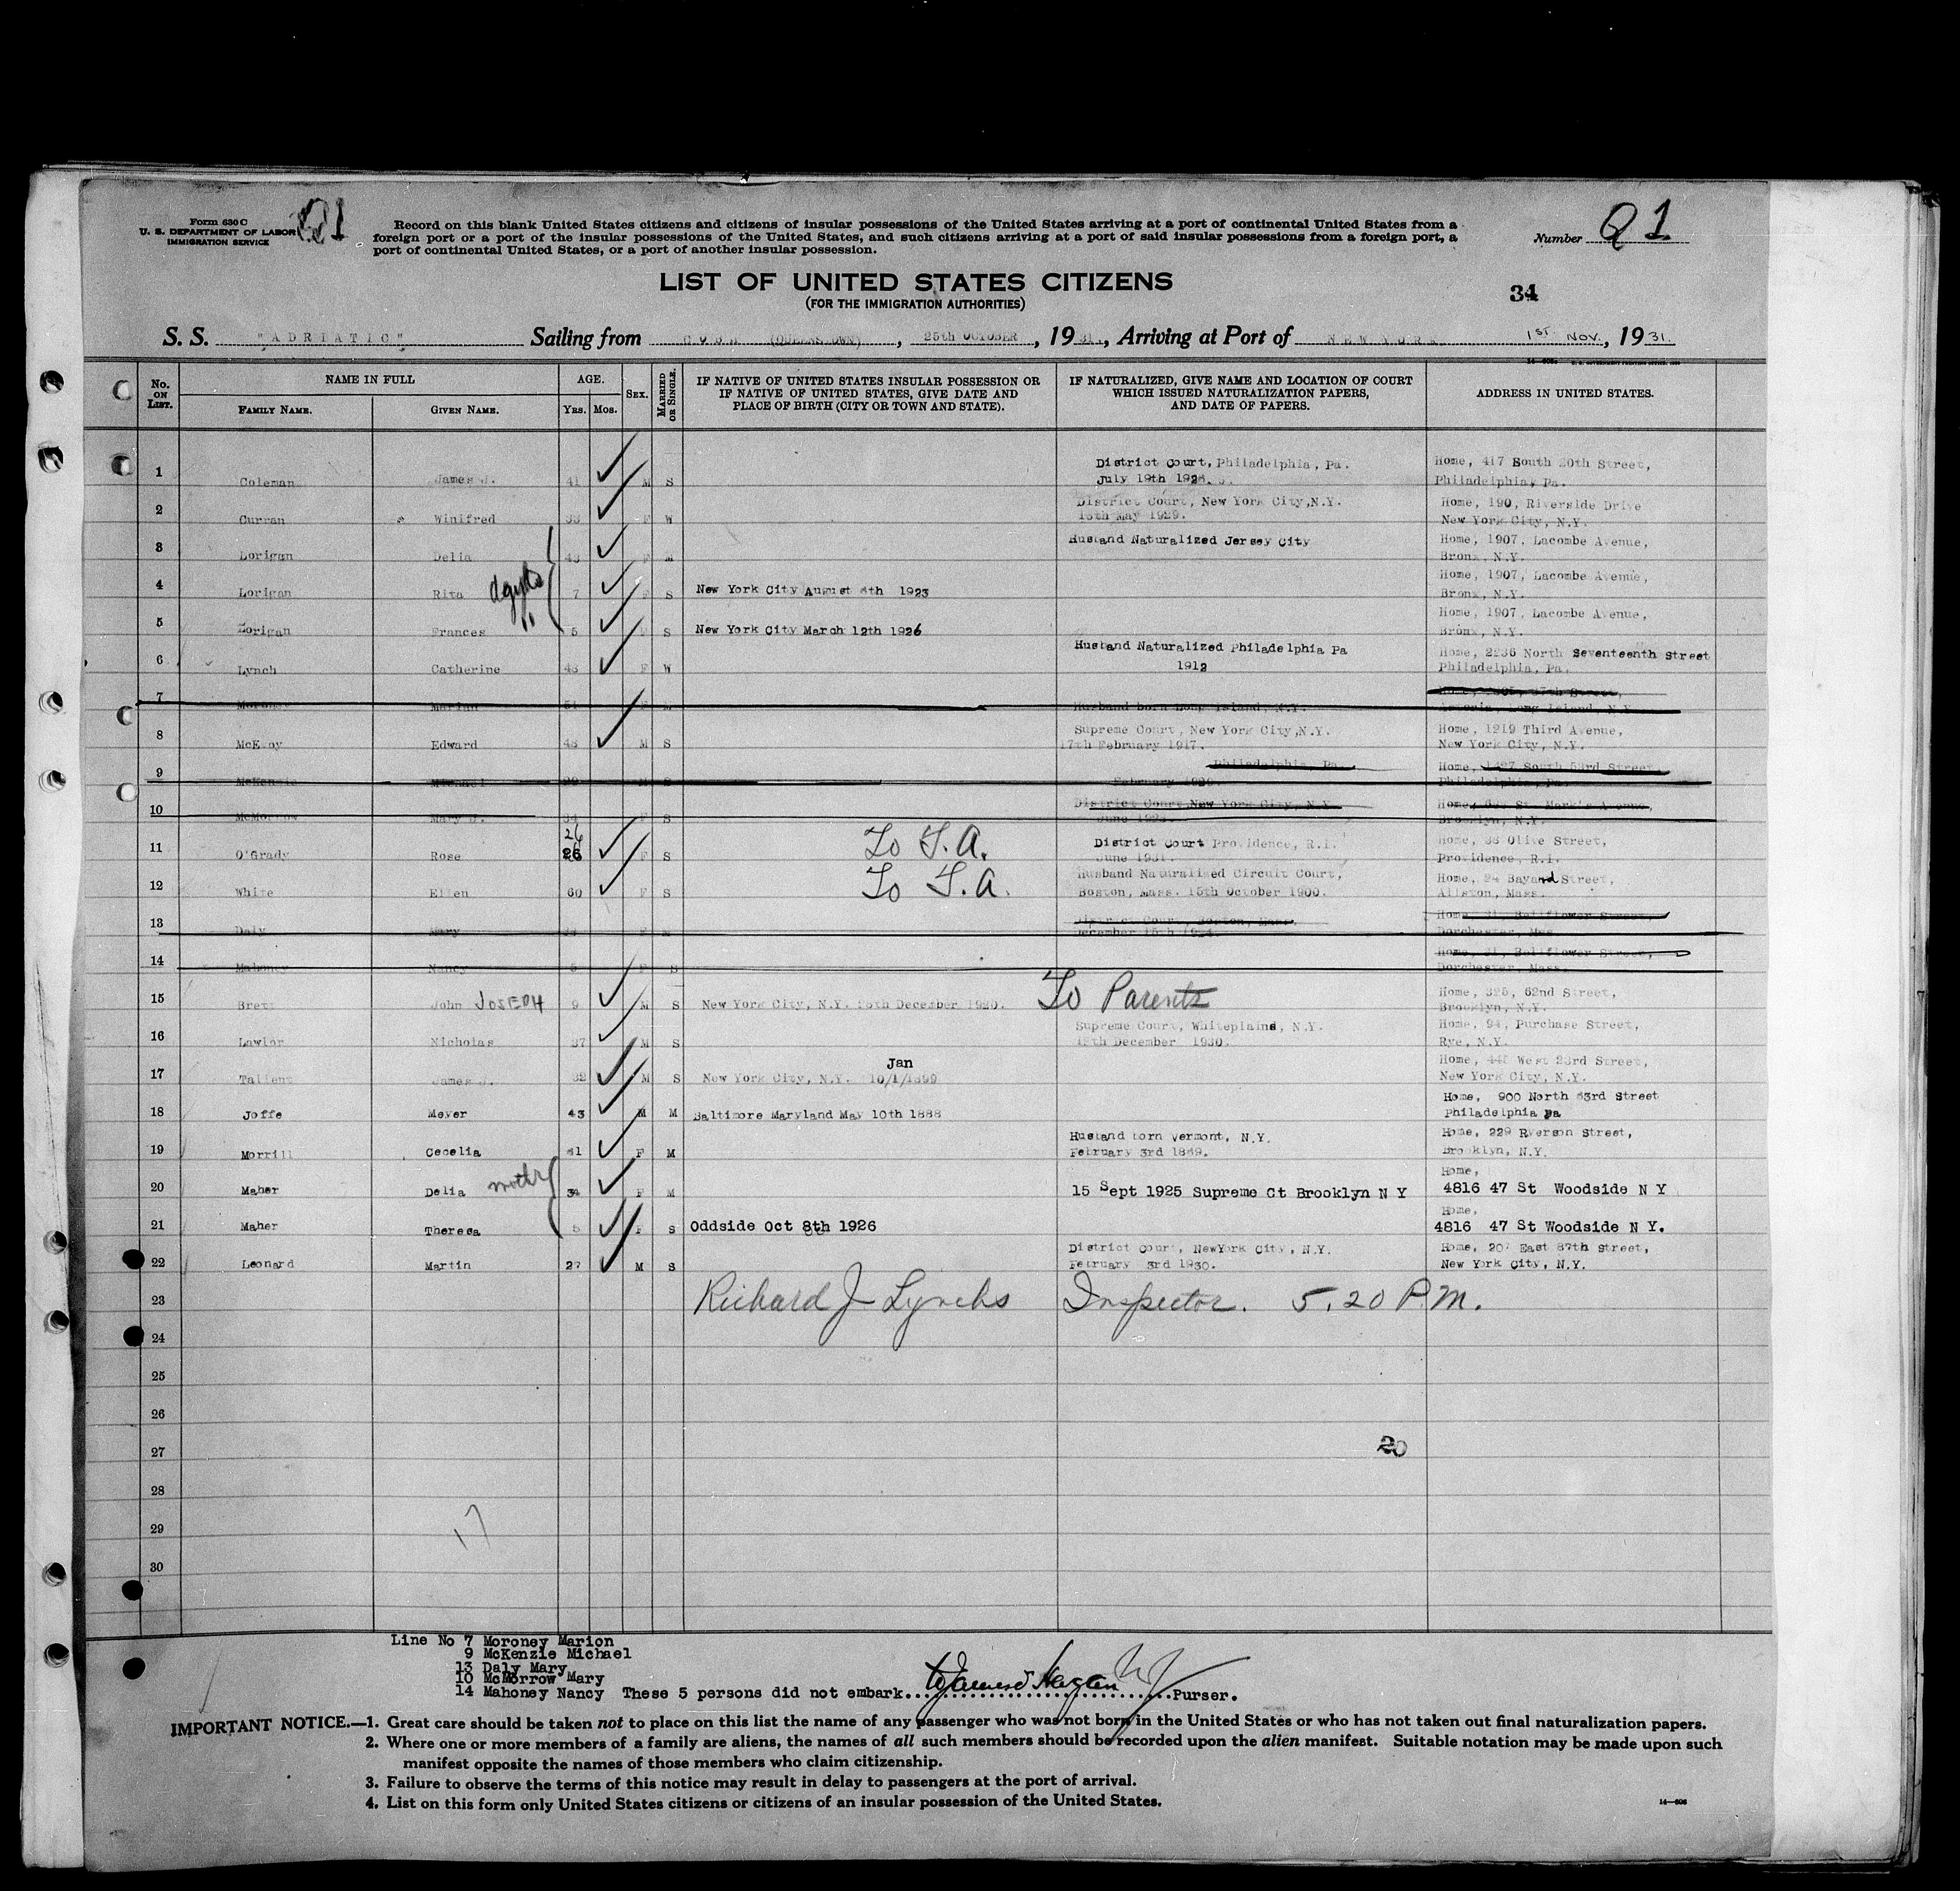 Form 630 C
U. S. DEPARTMENT OF LABOR
IMMIGRATION SERVICE
Q1
Record on this blank United States citizens and citizens of insular possessions of the United States arriving at a port of continental United States from a
foreign port or a port of the insular possessions of the United States, and such citizens arriving at a port of said insular possessions from a foreign port, a
port of continental United States, or a port of another insular possession.
Number Q 1
LIST OF UNITED STATES CITIZENS
(FOR THE IMMIGRATION AUTHORITIES)
34
S. S. "ADRIATIC" Sailing from COBH (QUEENSTOWN), 25th OCTOBER, 1931, Arriving at Port of NEW YORK 1ST NOV, 1931.
No. ON LIST.
NAME IN FULL
FAMILY NAME. GIVEN NAME.
AGE.
Yrs. Mos.
SEX.
MARRIED OR SINGLE.
IF NATIVE OF UNITED STATES INSULAR POSSESSION OR
IF NATIVE OF UNITED STATES, GIVE DATE AND
PLACE OF BIRTH (CITY OR TOWN AND STATE).
IF NATURALIZED, GIVE NAME AND LOCATION OF COURT
WHICH ISSUED NATURALIZATION PAPERS,
AND DATE OF PAPERS.
ADDRESS IN UNITED STATES.
1 Coleman James J. 41 M S District Court, Philadelphia, Pa. Home, 417 South 20th Street,
July 19th Philadelphia, Pa.
2 Curran Winifred F W District Court, New York City, N.Y. Home, 190, Riverside Drive
May 1929. New York City, N.Y.
3 Lorigan Delia 43 F M Husband Naturalized Jersey City Home, 1907, Lacombe Avenue,
Bronx, N.Y.
4 Lorigan Rita 7 F S New York City August 1923 Home, 1907, Lacombe Avenue,
Bronx, N.Y.
5 Lorigan Frances 5 F S New York City March 12th 1926 Home, 1907, Lacombe Avenue,
Bronx, N.Y.
6 Lynch Catherine F W Husband Naturalized Philadelphia Pa Home, 2236 North Seventeenth Street
1912 Philadelphia, Pa.
7 Moroney Marian Husband born Long Island, N.Y. Home, 37th Street,
Astoria, Long Island, N.Y.
8 McEvoy Edward M S Supreme Court, New York City, N.Y. Home, 1219 Third Avenue,
17th February 1917. New York City, N.Y.
9 McKenzie Michael M S Philadelphia, Pa. Home, 1427 South 53rd Street
February Philadelphia, Pa.
10 McMorrow Mary J. F S District Court, New York City, N.Y. Home, St. Mark's Avenue,
June Brooklyn, N.Y.
26
11 O'Grady Rose 26 F S To F.A. District Court Providence, R.I. Home, 38 Olive Street,
June 1931. Providence, R.I.
12 White Ellen 60 F S To F.A. Husband Naturalized Circuit Court, Home, 24 Bayand Street,
Boston, Mass. 15th October 1900. Allston, Mass.
13 Daly Mary F District Court, Boston, Mass. Home, 31, Bellflower Street,
December 15th Dorchester, Mass.
14 Mahoney Nancy F S Home, 31, Bellflower Street,
Dorchester, Mass.
15 Brett John JOSEPH 9 M S New York City, N.Y. December 1920. To Parents Home, 325, 62nd Street,
Brooklyn, N.Y.
16 Lawlor Nicholas 37 M S Supreme Court, Whiteplains, N.Y. Home, 94, Purchase Street,
December 1930. Rye, N.Y.
Jan
17 Tallent James J. 32 M S New York City, N.Y. 10/1/1899 Home, West 23rd Street,
New York City, N.Y.
18 Joffe Meyer 43 M M Baltimore Maryland May 10th 1888 Home, 900 North 63rd Street
Philadelphia Pa
19 Morrill Cecelia F M Husband born Vermont, N.Y. Home, 229 Ryerson Street,
February 3rd 1869. Brooklyn, N.Y.
20 Maher Delia mother 34 F M 15 Sept 1925 Supreme Ct Brooklyn N Y Home,
4816 47 St Woodside N Y
21 Maher Theresa 5 F S Oddside Oct 8th 1926 Home,
4816 47 St Woodside N Y.
22 Leonard Martin 27 M S District Court, NewYork City, N.Y. Home, 207 East 87th Street,
February 3rd 1930. New York City, N.Y.
23 Richard J Lynchs Inspector. 5.20 P.M.
24
25
26
27 20
28
29 17
30
Line No 7 Moroney Marion
9 McKenzie Michael
13 Daly Mary
10 McMorrow Mary
14 Mahoney Nancy These 5 persons did not embark. Purser.
IMPORTANT NOTICE.—1. Great care should be taken not to place on this list the name of any passenger who was not born in the United States or who has not taken out final naturalization papers.
2. Where one or more members of a family are aliens, the names of all such members should be recorded upon the alien manifest. Suitable notation may be made upon such
manifest opposite the names of those members who claim citizenship.
3. Failure to observe the terms of this notice may result in delay to passengers at the port of arrival.
4. List on this form only United States citizens or citizens of an insular possession of the United States.